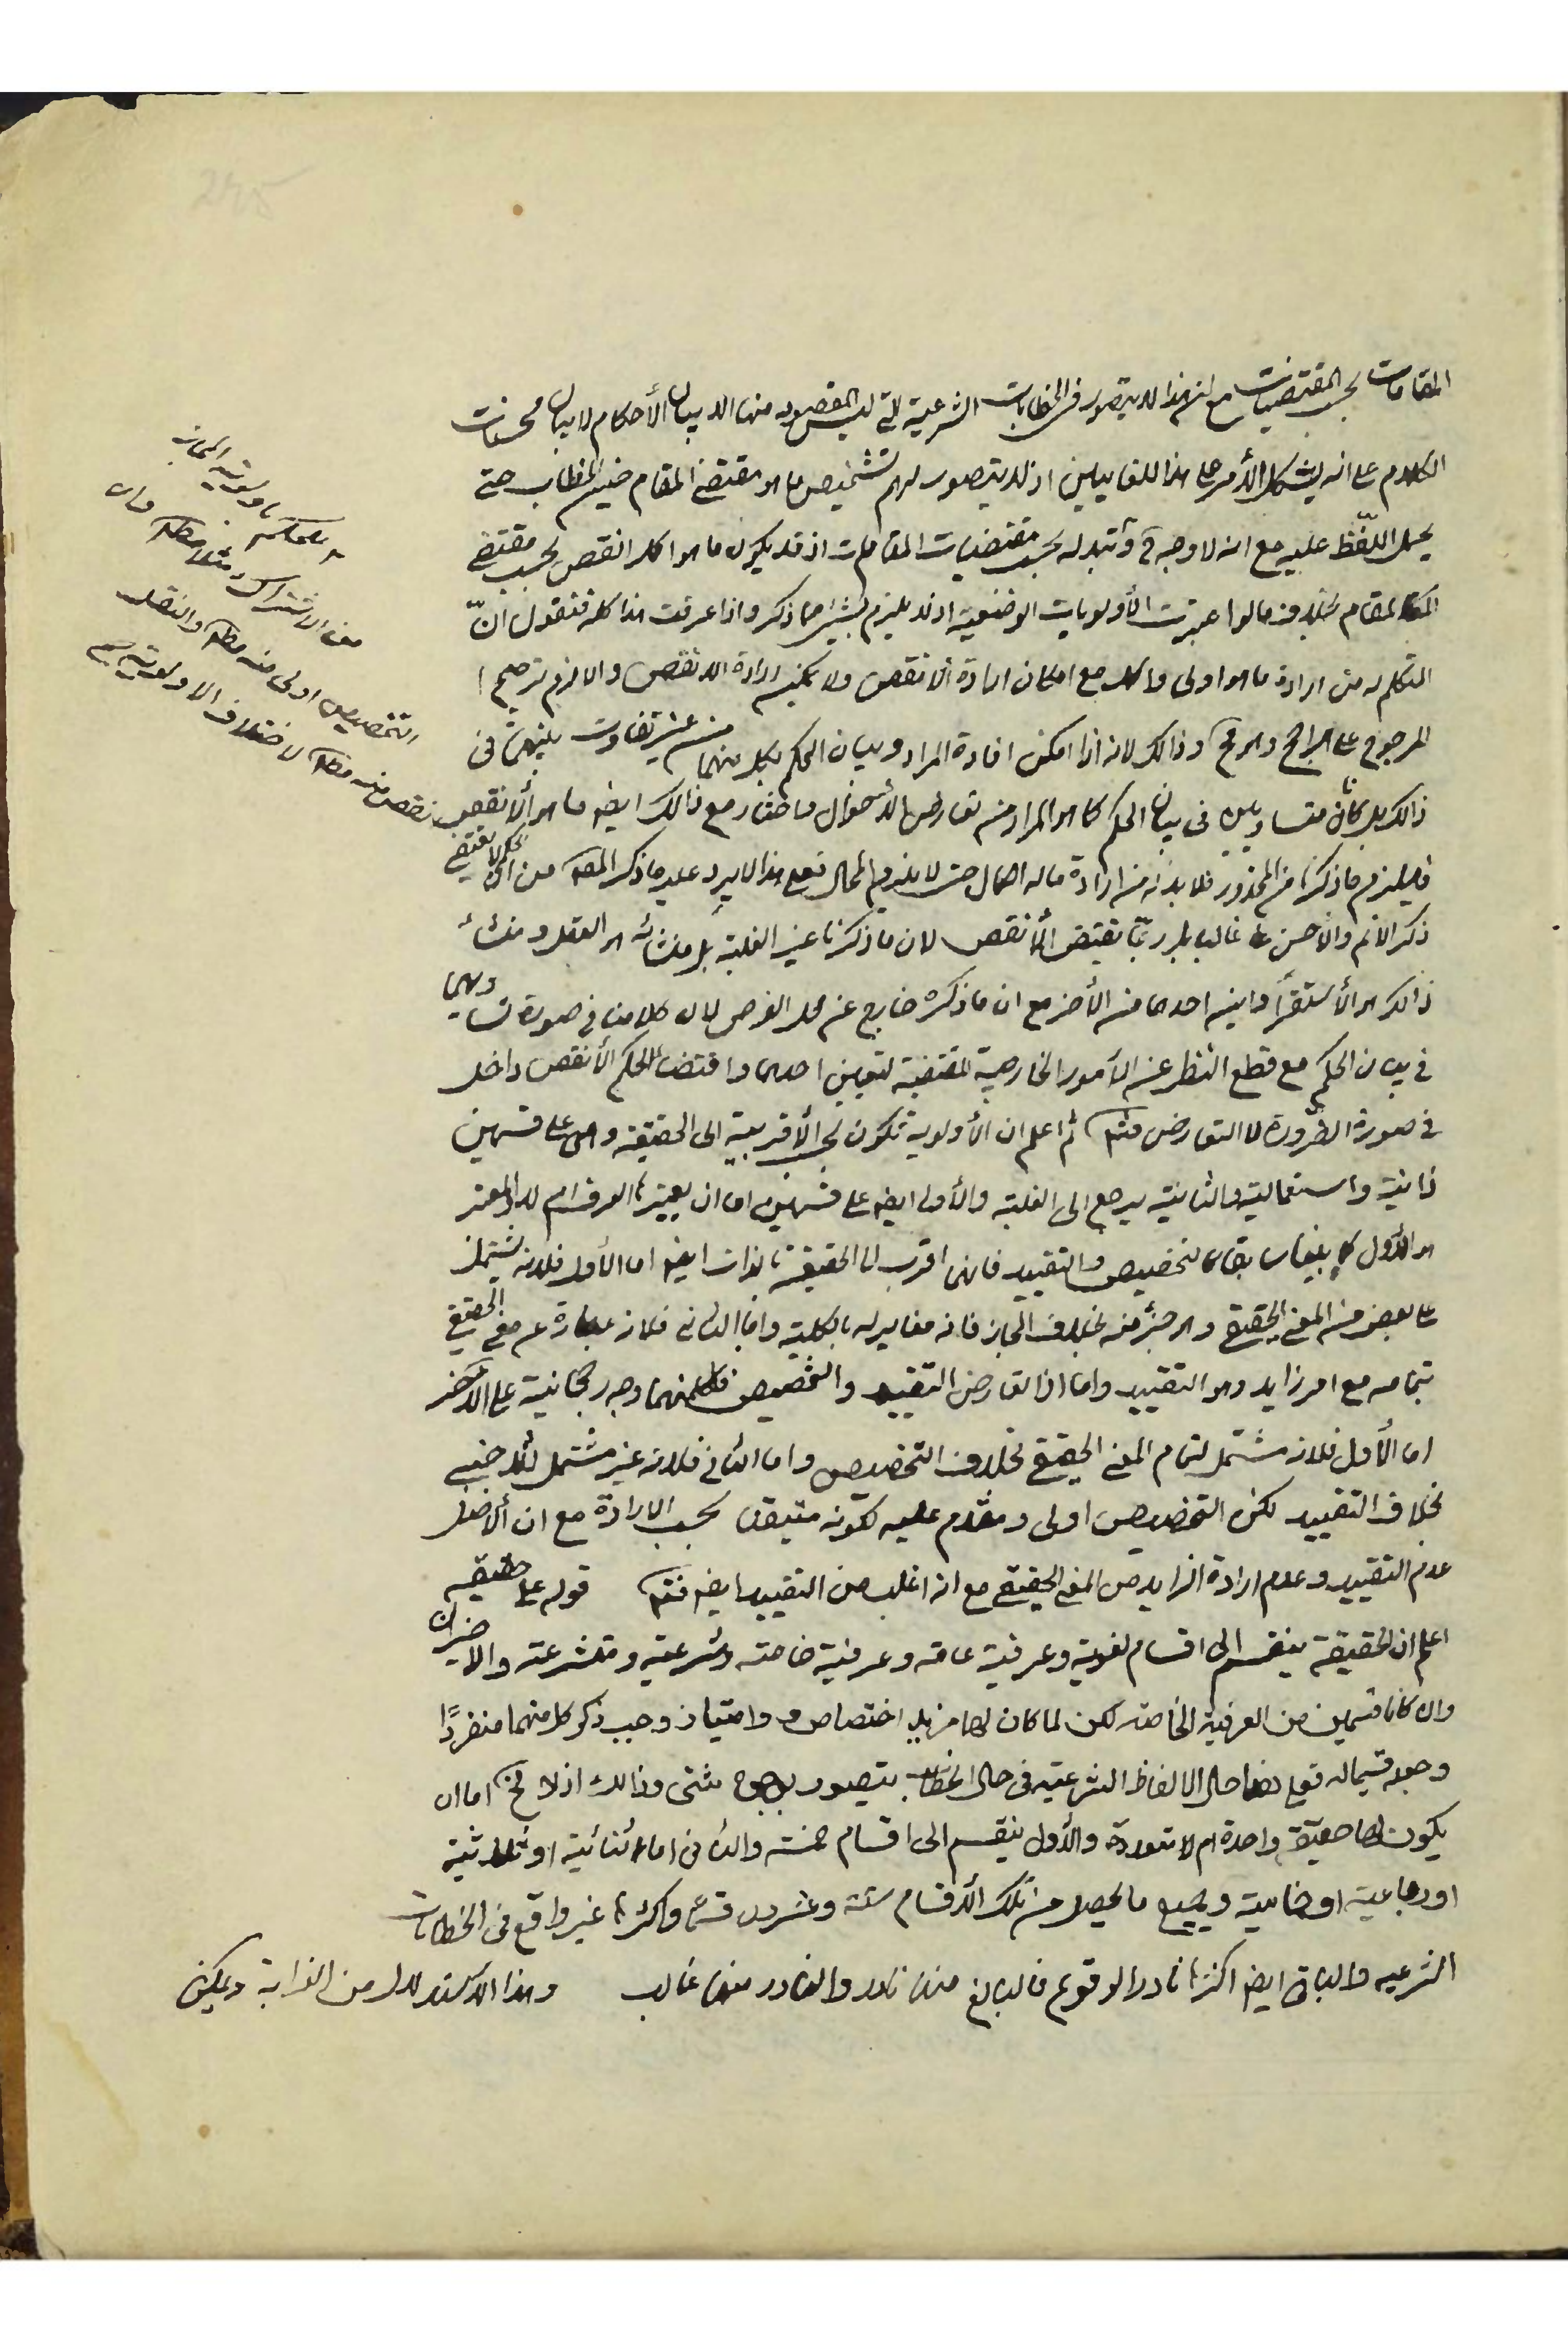 المقامات بحسب المقتضيات مع ان هذا لا يتصور في الخطابات الشرعية التي ليس المقصود منها الا بيان الأحكام لا بيان محسنات
الكلام على انه يشكل الأمر على هذا للقايلين اذ لا يتصور لهم تشخيص ما هو مقتضى المقام حين الخطاب حتى
يحمل اللّفظ عليه مع انه لا وجه في وتبدله بحسب مقتضيات المقامات اذ قد يكون ما هو اكد انقص بحسب مقتضى
المقام بخلاف ما لو اعتبرت الأولويات الوضعية اذ لا يلزم شيئ مما ذكر واذا عرفت هذا كله فنقول انّ
المتكلم لا بد من ارادة ما هو اولى واكد مع امكان ارادة الانقص ولا يمكنه ارادة الانقص والا لزم ترجيح
المرجوح على الراجح وهو قبح وذالك لانه اذا امكن افادة المراد وبيان الحكم بكل منهما من غير تفاوت بينهما في
ذالك بل كانا متساويين في بيان الحكم كما هو المراد من تعارض الاحوال واختار مع ذالك ايضا ما هو الأنقص
فيلزم ما ذكرنا من المحذور فلا بد له من ارادة ما له اكمال حتى لا يلزم المحال فعلى هذا لا يرد عليه ما ذكر المصه من ان الحكم لا يقتضي
ذكر الاتم والأحسن غالبا بل ربّما يقتضي الأنقص لان ما ذكرنا غير الغلبة بل منشائه هو العقل ومنشاء
ذالك هو الأستقراء واين احدهما من الأخر مع ان ما ذكره خارج عن محل الفرض لان كلامنا في صورة تساويهما
في بيان الحكم مع قطع النظر عن الأمور الخارجية المقتضية لتعيين احدهما واقتضاء الحكم الأنقص داخل
في صورة الضرورة لا التعارض فتم ثم اعلم ان الأولوية تكون بحسب الأقربية الى الحقيقة وهي على قسمين
ذاتية واستعمالية والثانية يرجع الى الغلبة والأول ايضا على قسمين اما ان يعتبرها العرف ام لا والمعتبر
هو الأول كما بيناه سابقا كالتخصيص والتقييد فانهما اقرب الى الحقيقة بالذات ايضا اما الأول فلانه يشتمل
على بعض من المعنى الحقيقي وهو جزء منه بخلاف المجاز فانه مغاير له بالكلية واما الثاني فلانه عبارة عن معنى الحقيقي
بتمامه مع امر زايد وهو التقييد واما اذا تعارض التقييد والتخصيص فلكل منهما وجه رجحانية على الاخر
اما الأول فلانه مشتمل لتمام المعنى الحقيقي بخلاف التخصيص واما الثاني فلانه غير مشتمل للاجنبي
بخلاف التقييد لكن التخصيص اولى ومقدم عليه لكونه متيقن بحسب الارادة مع ان الأصل
عدم التقييد وعدم ارادة الزايد من المعنى الحقيقي مع انه اغلب من التقييد ايضا فتم قوله على حقيقية
اعلم ان الحقيقة ينقسم الى اقسام لغوية وعرفية عامه وعرفية خاصته وشرعيته ومتشرعته والاخيران
وان كانا قسمين من العرفية الخاصته لكن لما كان لهما مزيد اختصاص وامتياز وجب ذكر كل منهما منفردًا
وجعله قسيما له فعلى هذا حال الالفاظ الشرعيته في حال الخطاب يتصور بوجوه شتى وذالك اذ لا يخ اما ان
يكون لها حقيقة واحدة ام لا متعددة والأول ينقسم الى اقسام خمسته والثاني اما ثنائية او ثلاثية
او رباعية او خماسية وجميع ما يحصل من تلك الأقسام ستة وعشرون قسما واكثرها غير واقع في الخطابات
الشرعيه والباقي ايضا اكثرها نادر الوقوع فالبالغ منها نادر والنادر منها غالب وهذا الاستدلال من الغرابة ويمكن
التخصيص اولى منه مطلقا والنقل